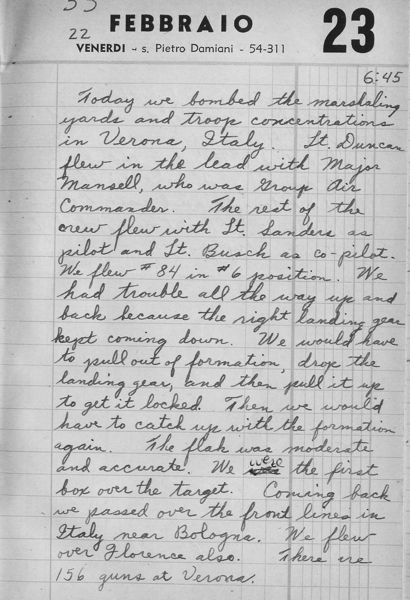 33
FEBBRAIO 23
22
VENERDI - s. Pietro Damiani - 54-311
6:45
Today we bombed the marshaling
yards and troop concentrations
in Verona, Italy. Lt. Duncan
flew in the lead with Major
Mansell, who was Group Air
Commander. The rest of the
crew flew with Lt. Sanders as
pilot and Lt. Busch as co-pilot.
We flew #84 in #6 position. We
had trouble all the way up and
back because the right landing gear
kept coming down. We would have
to pull out of formation, drop the
landing gear, and then pull it up
to get it locked. Then we would
have to catch up with the formation
again. The flak was moderate
and accurate. We were the first
box over the target. Coming back
we passed over the front lines in
Italy near Bologna. We flew
over Florence also. There are
156 guns at Verona.